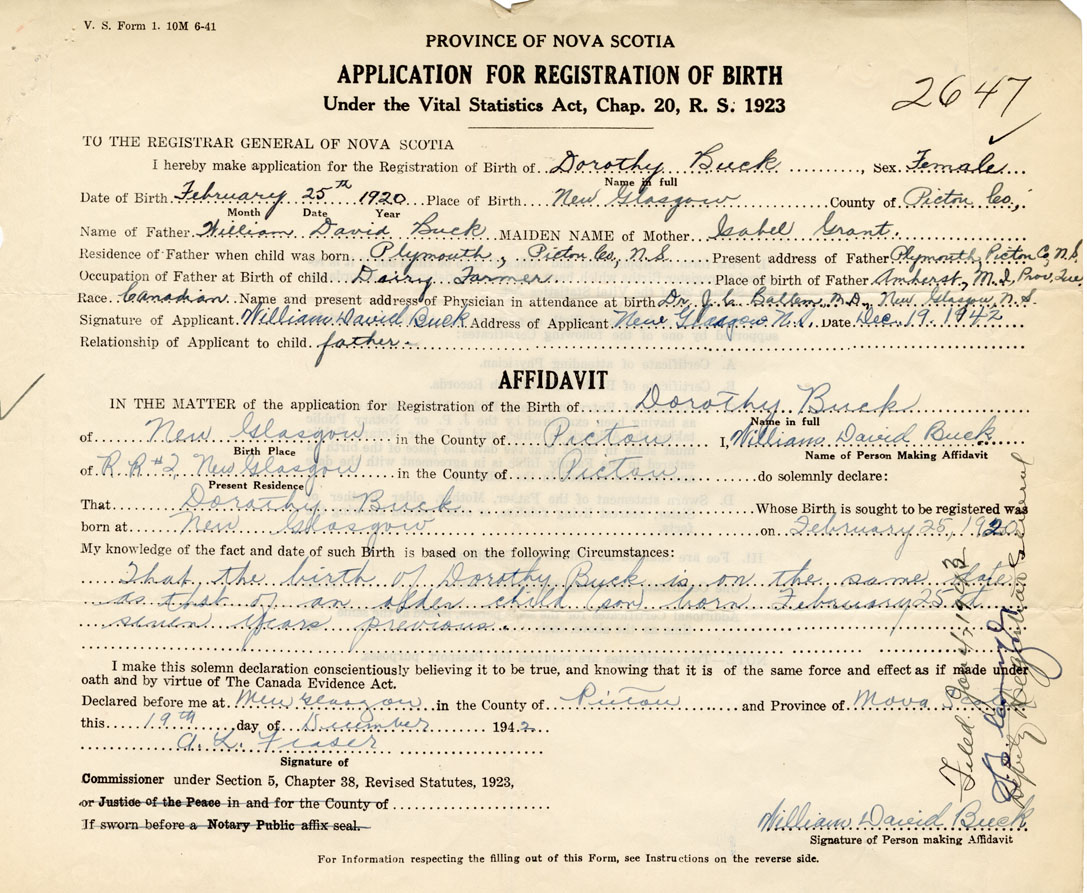 V. S. Form 1. 10M 6-41
PROVINCE OF NOVA SCOTIA
APPLICATION FOR REGISTRATION OF BIRTH
Under the Vital Statistics Act, Chap. 20, R. S. 1923
2647
TO THE REGISTRAR GENERAL OF NOVA SCOTIA
I hereby make application for the Registration of Birth of Dorothy Buck, Sex Female
Name in full
Date of Birth February 25th 1920 Place of Birth New Glasgow County of Pictou Co.,
Month Date Year
Name of Father William David Buck MAIDEN NAME of Mother Isabel Grant.
Residence of Father when child was born Plymouth, Pictou Co, N.S. Present address of Father Plymouth, Pictou Co, N.S.
Occupation of Father at Birth of child Dairy Farmer Place of birth of Father Amherst, M.I, Prov. Que
Race Canadian Name and present address of Physician in attendance at birth Dr. J. C. Ballem M.D., New Glasgow N.S.
Signature of Applicant William David Buck Address of Applicant New Glasgow N.S. Date Dec. 19. 1942
Relationship of Applicant to child father
AFFIDAVIT
IN THE MATTER of the application for Registration of the Birth of Dorothy Buck
Name in full
of New Glasgow in the County of Pictou I, William David Buck
Birth Place Name of Person Making Affidavit
of R.R #2, New Glasgow in the County of Pictou do solemnly declare:
Present Residence
That Dorothy Buck Whose Birth is sought to be registered was
born at New Glasgow on February 25, 1920
My knowledge of the fact and date of such Birth is based on the following Circumstances:
That the birth of Dorothy Buck is on the same date
as that of an older child (son) born February 25th
seven years previous.
I make this solemn declaration conscientiously believing it to be true, and knowing that it is of the same force and effect as if made under
oath and by virtue of The Canada Evidence Act.
Declared before me at New Glasgow in the County of Pictou and Province of Nova
this 19th day of December 1942
A. L. Fraser
Signature of
Commissioner under Section 5, Chapter 38, Revised Statutes, 1923,
or Justice of the Peace in and for the County of
If sworn before a Notary Public affix seal.
William David Buck
Signature of Person making Affidavit
For Information respecting the filling out of this Form, see Instructions on the reverse side.
Filed Jan 4/1943
Deputy Registrar General